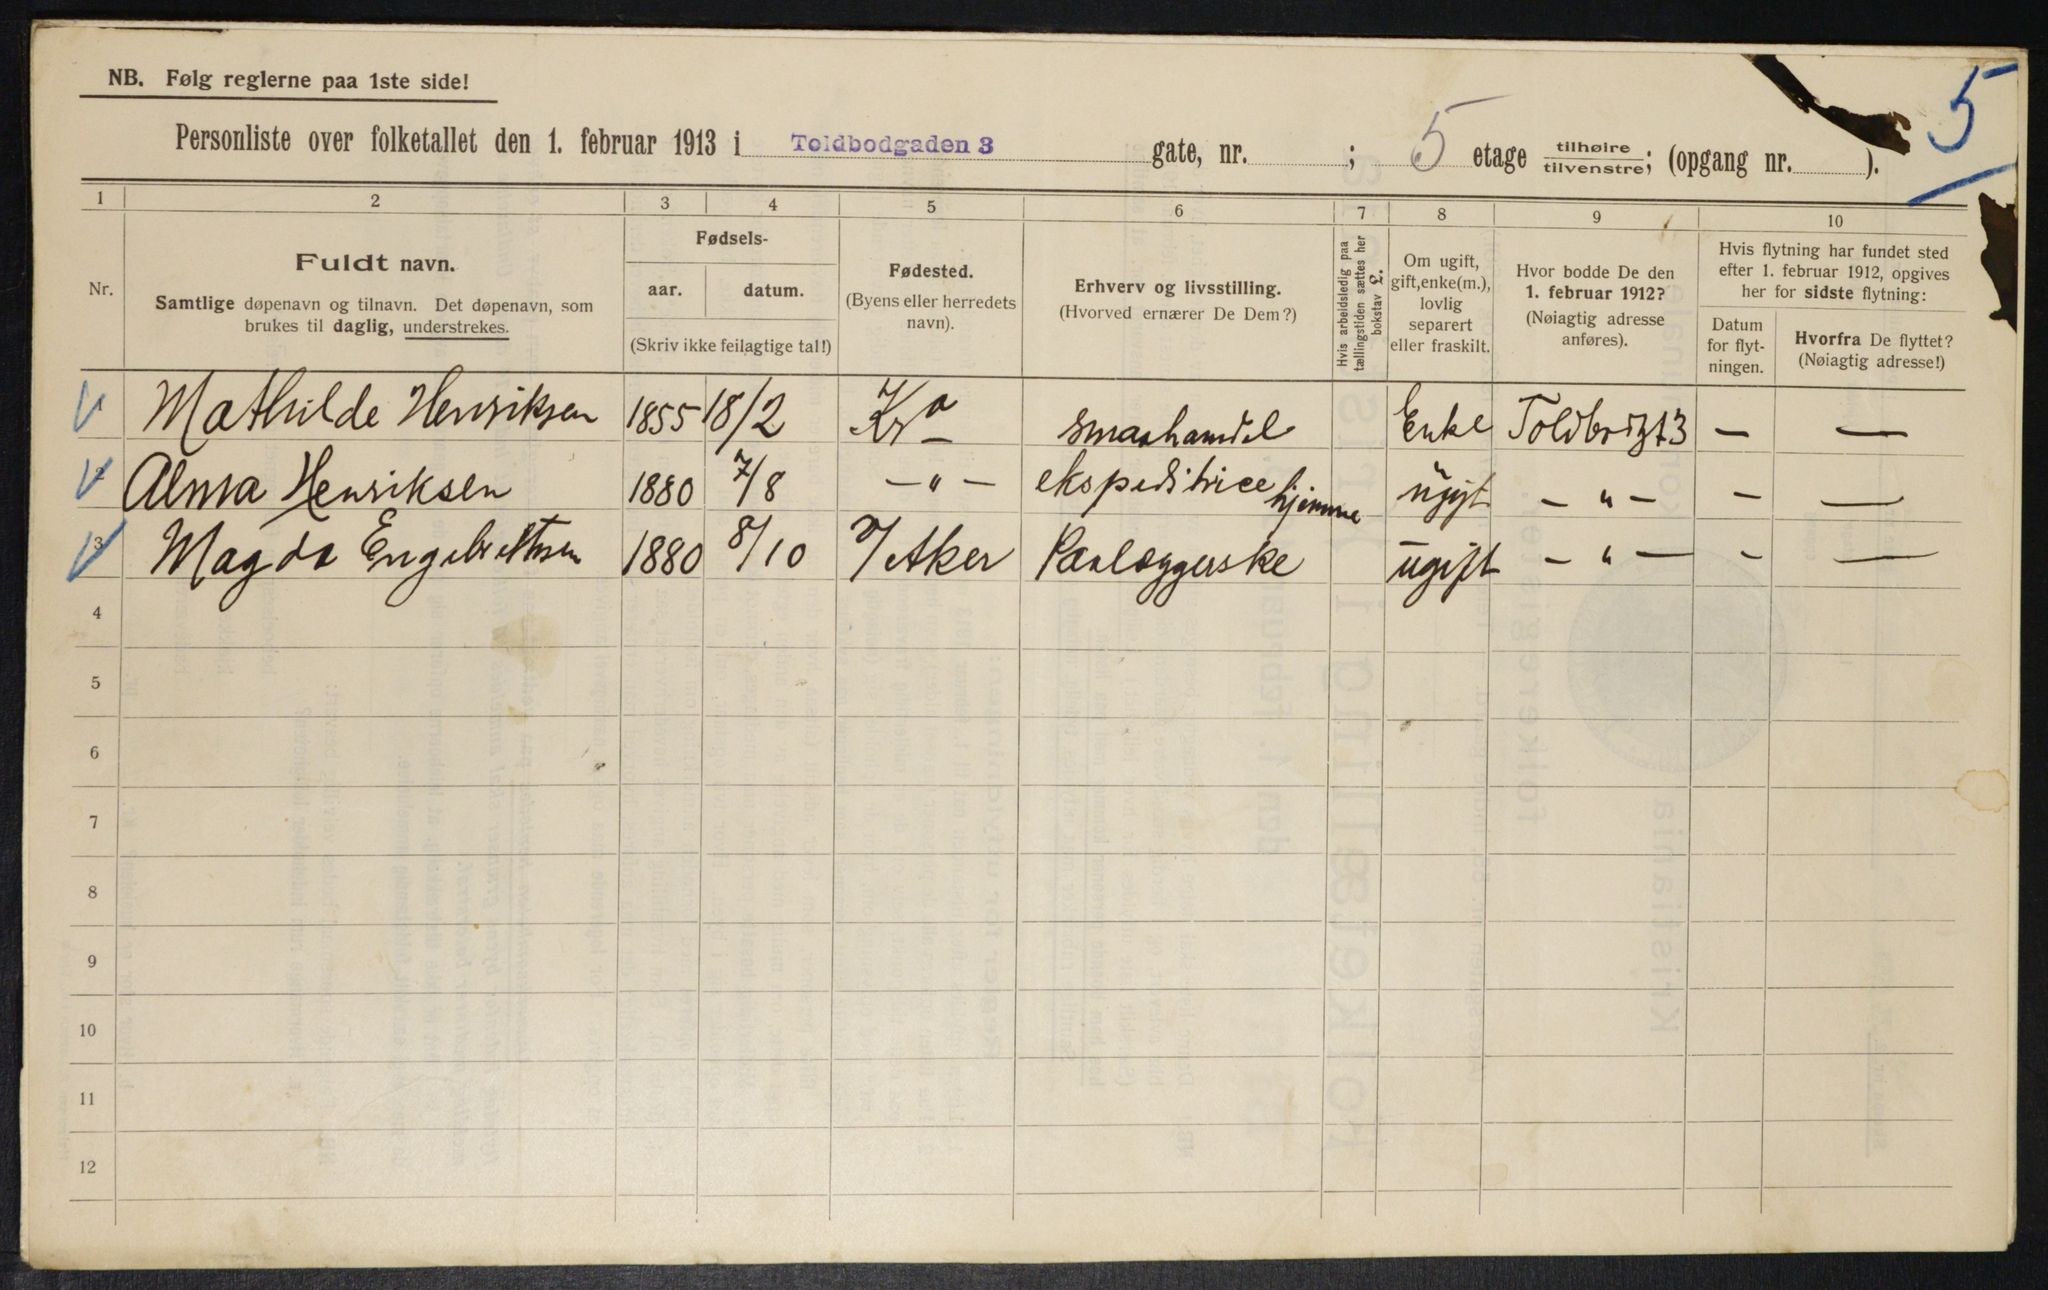 NB. Følg reglerne paa 1ste side!
5
Personliste over folketallet den 1. februar 1913 i Toldbodgaden 3 gate, nr. ; 5 etage tilhøire tilvenstre; (opgang nr. ).
1 2 3 4 5 6 7 8 9 10
Nr.
Fuldt navn.
Samtlige døpenavn og tilnavn. Det døpenavn, som
brukes til daglig, understrekes.
Fødsels-
aar. datum.
(Skriv ikke feilagtige tal!)
Fødested.
(Byens eller herredets
navn).
Erhverv og livsstilling.
(Hvorved ernærer De Dem?)
Hvis arbeidsledig paa
tællingstiden sættes her
bokstav L.
Om ugift,
gift, enke(m.),
lovlig
separert
eller fraskilt.
Hvor bodde De den
1. februar 1912?
(Nøiagtig adresse
anføres).
Hvis flytning har fundet sted
efter 1. februar 1912, opgives
her for sidste flytning:
Datum
for flyt-
ningen.
Hvorfra De flyttet?
(Nøiagtig adresse!)
1 Mathilde Henriksen 1855 18/2 Kra smaahandel Enke Toldbodgt 3 — —
2 Alma Henriksen 1880 7/8 — „ — ekspeditrice hjemme ugift — „ — — —
3 Magda Engebrettsen 1880 8/10 V/Aker Paalæggerske ugift — „ — — —
4
5
6
7
8
9
10
11
12